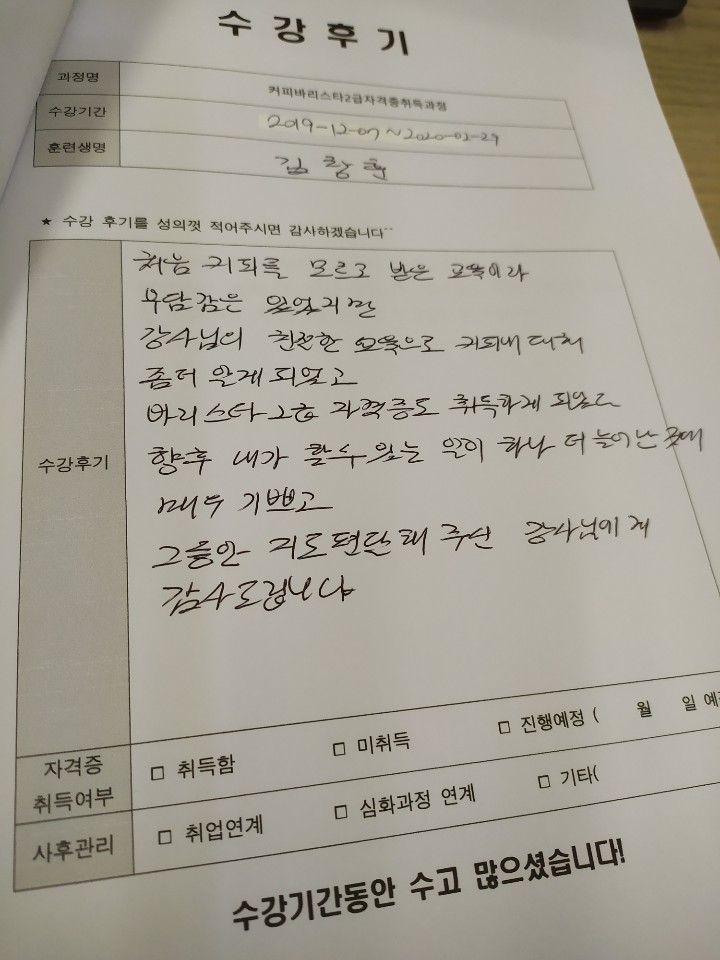 수 강 후 기
과정명 커피바리스타2급자격증취득과정
수강기간 2019-12-07~2020-02-29
훈련생명 김창
★ 수강 후기를 성의껏 적어주시면 감사하겠습니다^^
수강후기
처음 커피를 모르고 받은 교육이라
부담감은 있었지만
강사님의 친절한 교육으로 커피에 대해
좀더 알게 되었고
바리스타 2급 자격증도 취득하게 되었고
향후 내가 할수 있는 일이 하나 더 늘어난
매우 기쁘고
그동안 지도편달해 주신 강사님에게
감사드립니다
자격증 취득여부 □ 취득함 □ 미취득 □ 진행예정 ( 월 일 예정
사후관리 □ 취업연계 □ 심화과정 연계 □ 기타(
수강기간동안 수고 많으셨습니다!